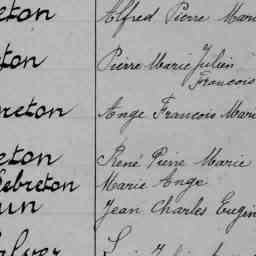 eton Alfred Pierre Marie
ton Pierre Marie Julien
Francois
reton Ange Francois Mari
eton René Pierre Marie
Lebreton Marie Ange
un Jean Charles Eugèn